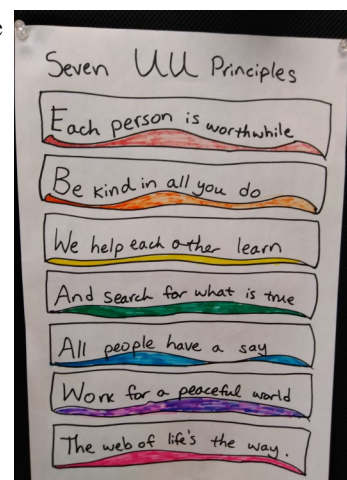 Seven UU Principles
Each person is worthwhile
Be kind in all you do
We help each other learn
And search for what is true
All people have a say
Work for a peaceful world
The web of life's the way.